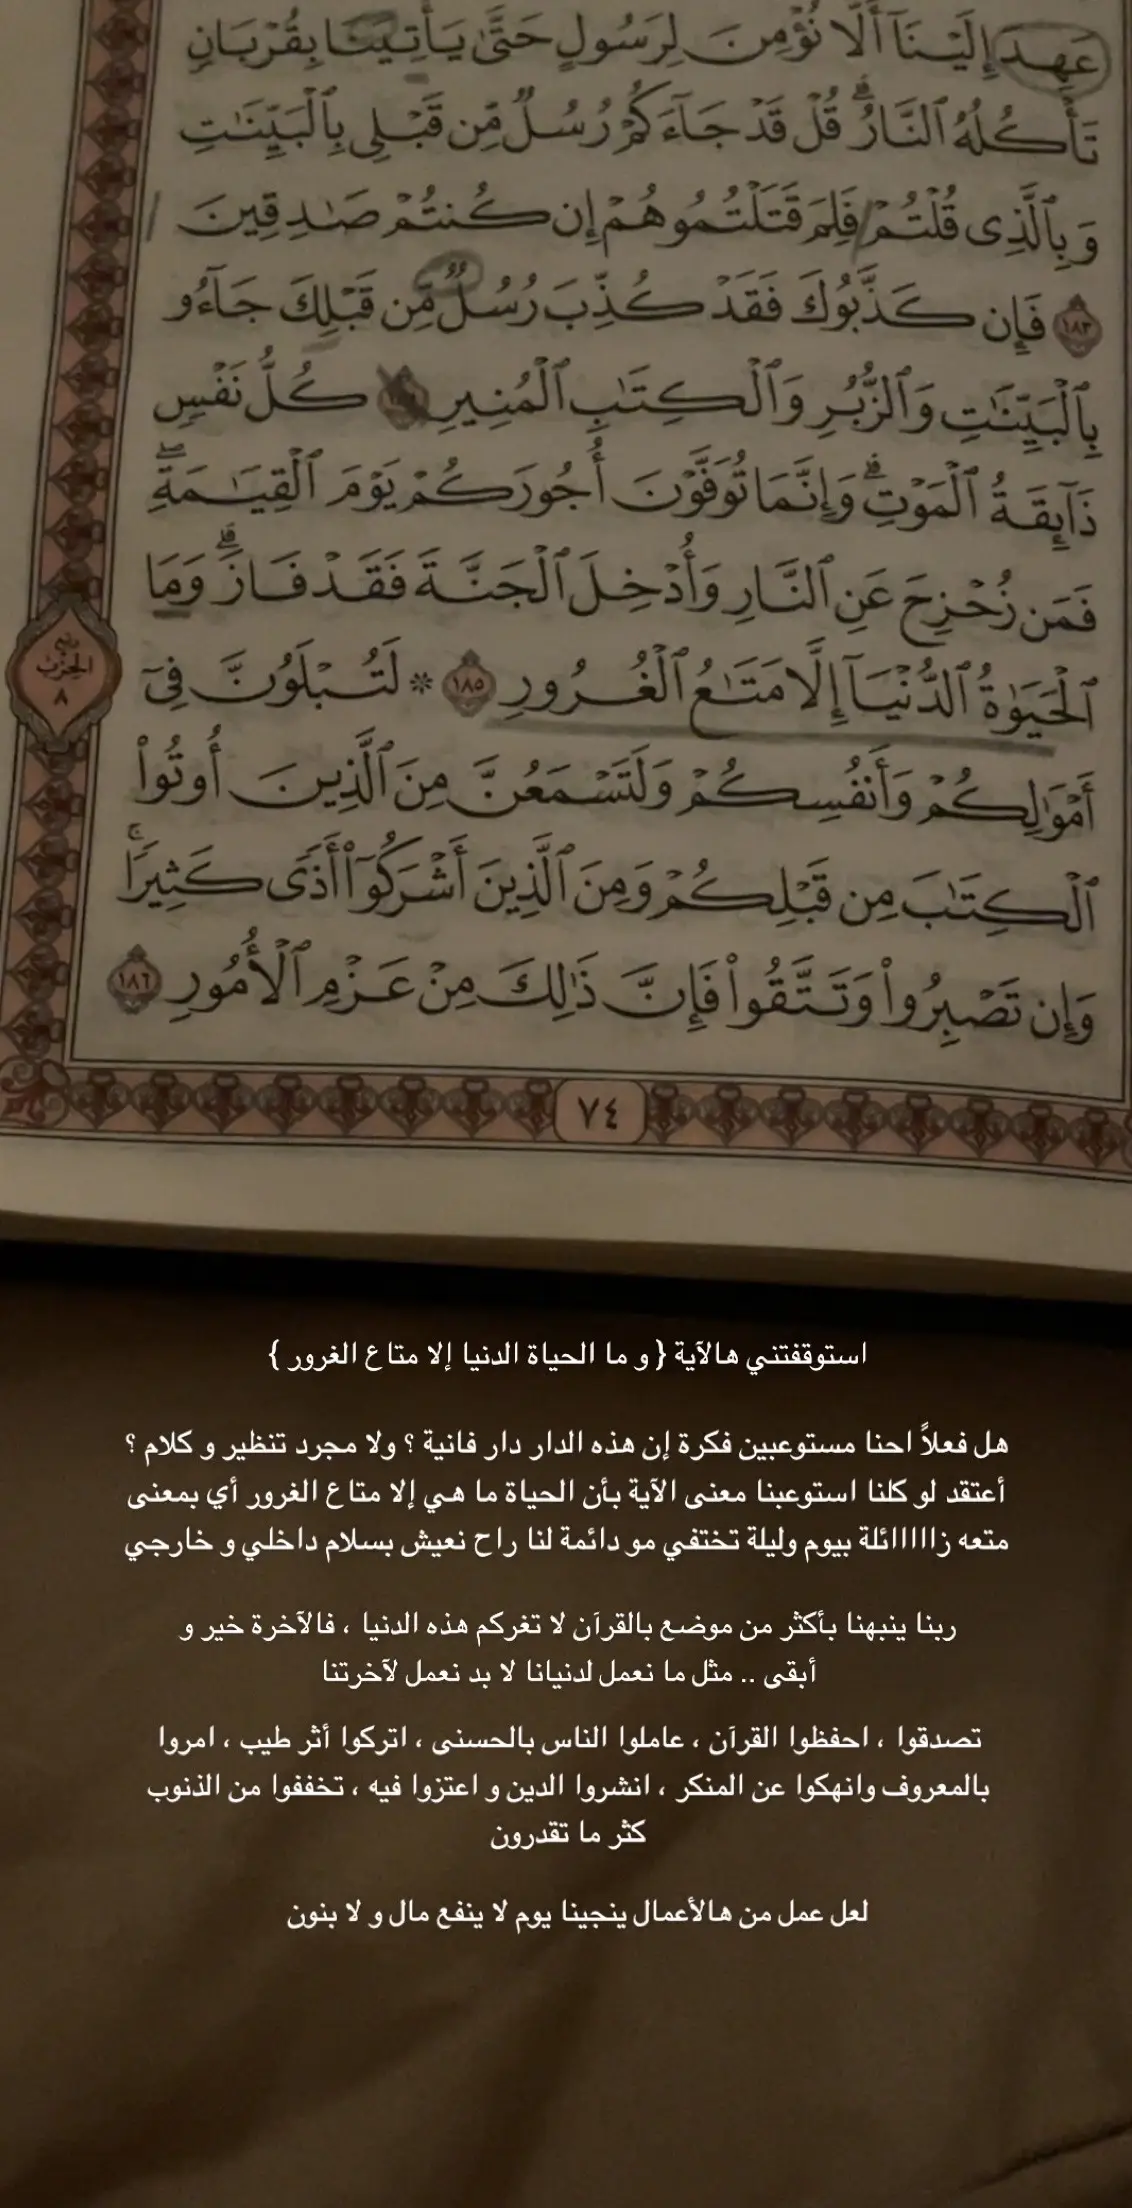 عَهِدَ إِلَيْنَآ أَلَّا نُؤْمِنَ لِرَسُولٍ حَتَّىٰ يَأْتِيَنَا بِقُرْبَانٍ
تَأْكُلُهُ ٱلنَّارُ ۗ قُلْ قَدْ جَآءَكُمْ رُسُلٌ مِّن قَبْلِى بِٱلْبَيِّنَٰتِ
وَبِٱلَّذِى قُلْتُمْ فَلِمَ قَتَلْتُمُوهُمْ إِن كُنتُمْ صَٰدِقِينَ
١٨٣ فَإِن كَذَّبُوكَ فَقَدْ كُذِّبَ رُسُلٌ مِّن قَبْلِكَ جَآءُو
بِٱلْبَيِّنَٰتِ وَٱلزُّبُرِ وَٱلْكِتَٰبِ ٱلْمُنِيرِ كُلُّ نَفْسٍ
ذَآئِقَةُ ٱلْمَوْتِ ۗ وَإِنَّمَا تُوَفَّوْنَ أُجُورَكُمْ يَوْمَ ٱلْقِيَٰمَةِ ۖ
فَمَن زُحْزِحَ عَنِ ٱلنَّارِ وَأُدْخِلَ ٱلْجَنَّةَ فَقَدْ فَازَ ۗ وَمَا
ٱلْحَيَوٰةُ ٱلدُّنْيَآ إِلَّا مَتَٰعُ ٱلْغُرُورِ ١٨٥ * لَتُبْلَوُنَّ فِىٓ
أَمْوَٰلِكُمْ وَأَنفُسِكُمْ وَلَتَسْمَعُنَّ مِنَ ٱلَّذِينَ أُوتُوا۟
ٱلْكِتَٰبَ مِن قَبْلِكُمْ وَمِنَ ٱلَّذِينَ أَشْرَكُوٓا۟ أَذًى كَثِيرًا ۚ
وَإِن تَصْبِرُوا۟ وَتَتَّقُوا۟ فَإِنَّ ذَٰلِكَ مِنْ عَزْمِ ٱلْأُمُورِ ١٨٦
الحزب
٨
٧٤
استوقفتني هالآية { و ما الحياة الدنيا إلا متاع الغرور }
هل فعلاً احنا مستوعبين فكرة إن هذه الدار دار فانية ؟ ولا مجرد تنظير و كلام ؟
أعتقد لو كلنا استوعبنا معنى الآية بأن الحياة ما هي إلا متاع الغرور أي بمعنى
متعه زااااائلة بيوم وليلة تختفي مو دائمة لنا راح نعيش بسلام داخلي و خارجي
ربنا ينبهنا بأكثر من موضع بالقرآن لا تغركم هذه الدنيا ، فالآخرة خير و
أبقى .. مثل ما نعمل لدنيانا لا بد نعمل لآخرتنا
تصدقوا ، احفظوا القرآن ، عاملوا الناس بالحسنى ، اتركوا أثر طيب ، امروا
بالمعروف وانهكوا عن المنكر ، انشروا الدين و اعتزوا فيه ، تخففوا من الذنوب
كثر ما تقدرون
لعل عمل من هالأعمال ينجينا يوم لا ينفع مال و لا بنون